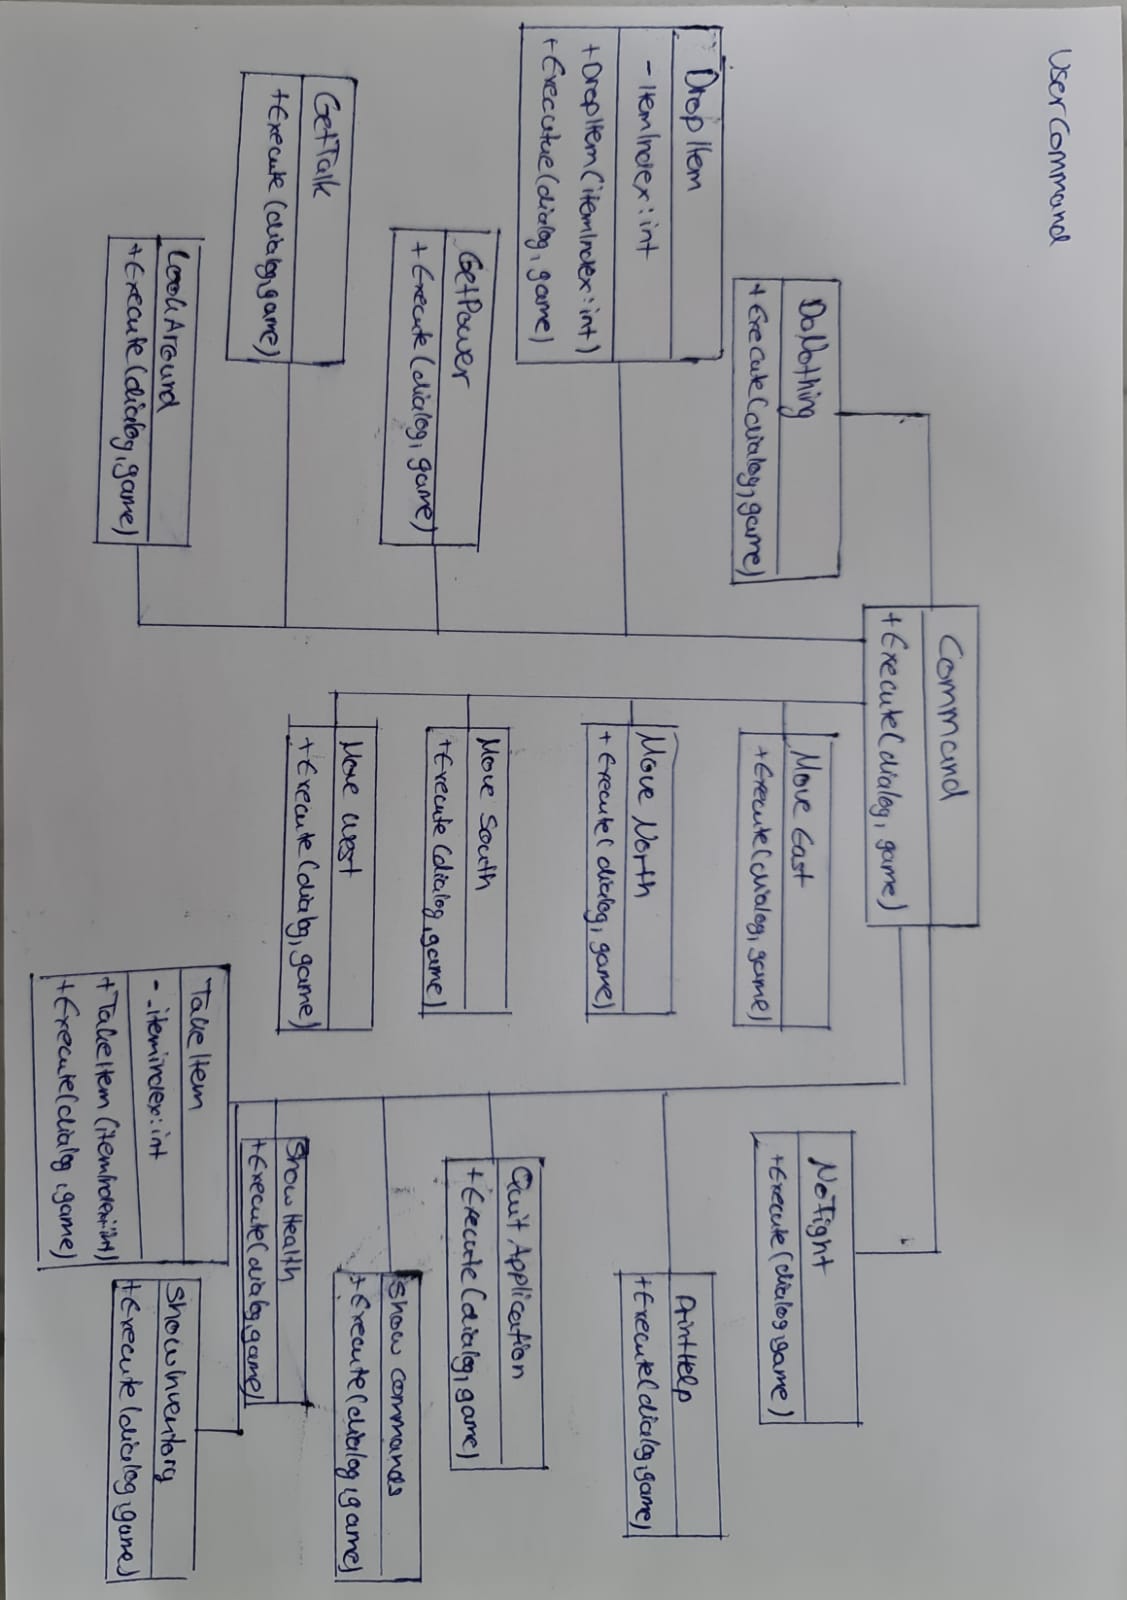 UserCommand
Command
+Execute(dialog, game)
DoNothing
+Execute(dialog, game)
DropItem
- ItemIndex: int
+DropItem(itemIndex: int)
+Executue(dialog, game)
GetPower
+Execute(dialog, game)
GetTalk
+Execute(dialog, game)
LookAround
+Execute(dialog, game)
Move East
+Execute(dialog, game)
Move North
+Execute(dialog, game)
Move South
+Execute(dialog, game)
Move West
+Execute(dialog, game)
NoFight
+Execute(dialog, game)
PrintHelp
+Execute(dialog, game)
Quit Application
+Execute(dialog, game)
Show Commands
+Execute(dialog, game)
Show Health
+Execute(dialog, game)
TakeItem
- _itemindex: int
+TakeItem(itemIndex: int)
+Execute(dialog, game)
ShowInventory
+Execute(dialog, game)